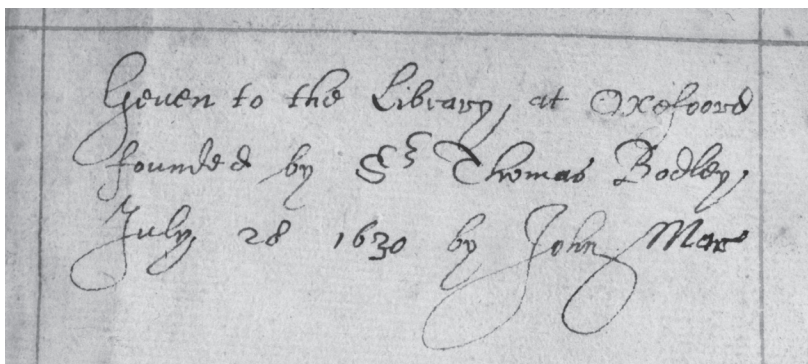 Geven to the Library, at Oxefoord
founded by Sr Thomas Bodley,
July 28 1630 by John Mare